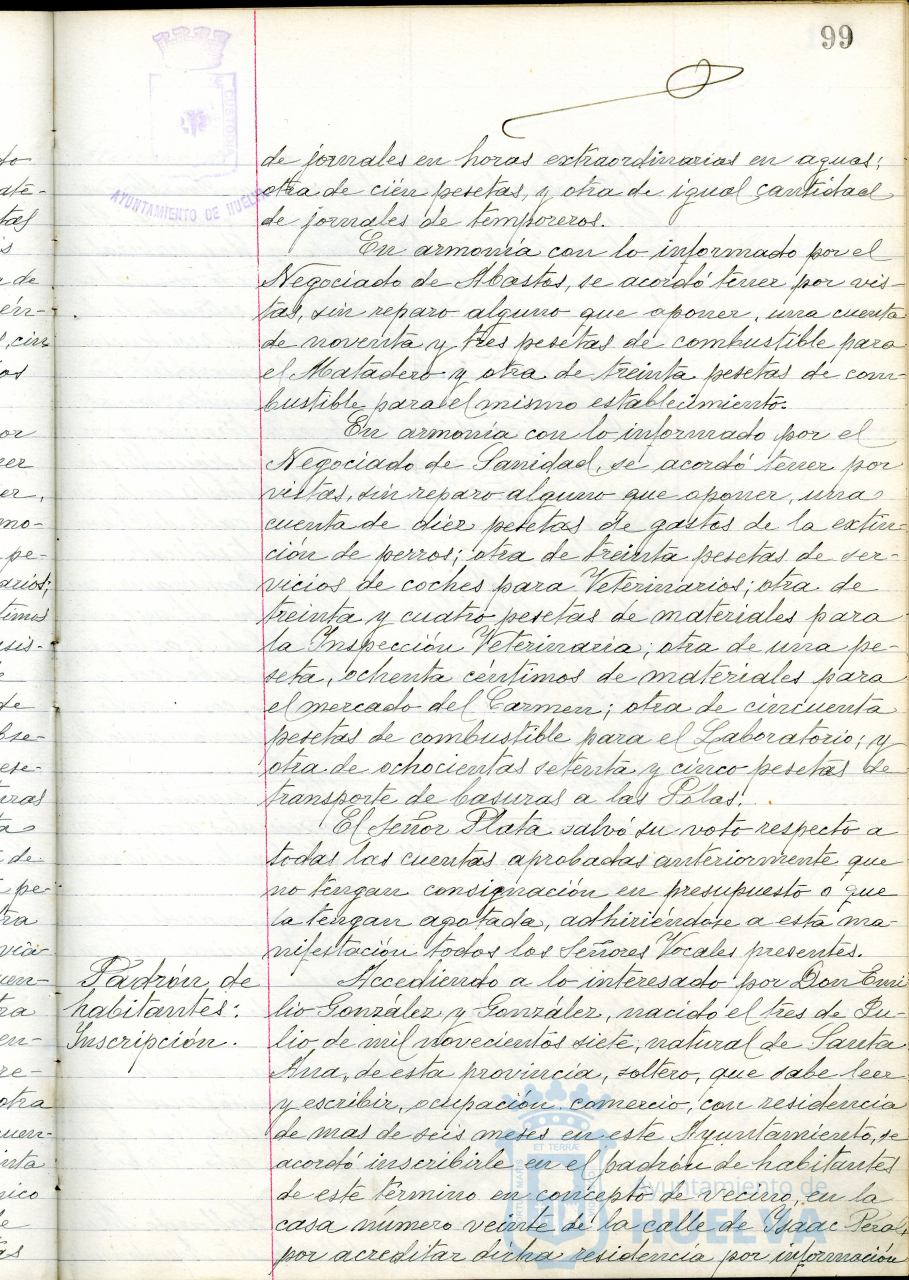 99
CUSTODIA
AYUNTAMIENTO DE HUELVA
de jornales en horas extraordinarias en aguas;
otra de cién pesetas, y otra de igual cantidad
de jornales de temporeros.
En armonía con lo informado por el
Negociado de Abastos, se acordó tener por vis-
tas, sin reparo alguno que oponer, una cuenta
de noventa y tres pesetas de combustible para
el Matadero y otra de treinta pesetas de com-
bustible para el mismo establecimiento.
En armonía con lo informado por el
Negociado de Sanidad, se acordó tener por
vistas, sin reparo alguno que oponer, una
cuenta de diez pesetas de gastos de la extin-
ción de perros; otra de treinta pesetas de ser-
vicios de coches para Veterinarios; otra de
treinta y cuatro pesetas de materiales para
la Inspección Veterinaria; otra de una pe-
seta, ochenta céntimos de materiales para
el mercado del Carmen; otra de cincuenta
pesetas de combustible para el Laboratorio; y
otra de ochocientas setenta y cinco pesetas de
transporte de basuras a las Polas.
El Señor Plata salvó su voto respecto a
todas las cuentas aprobadas anteriormente que
no tengan consignación en presupuesto o que
la tengan agotada, adhiriéndose a esta ma-
nifestación todos los Señores Vocales presentes.
Padrón de
habitantes:
Inscripción.
Accediendo a lo interesado por Don Emi-
lio González y González, nacido el tres de Ju-
lio de mil novecientos siete, natural de Santa
Ana, de esta provincia, soltero, que sabe leer
y escribir, ocupación, comercio, con residencia
de mas de seis meses en este Ayuntamiento, se
acordó inscribirle en el padrón de habitantes
de este término en concepto de vecino, en la
casa número veinte de la calle de Isaac Peral,
por acreditar dicha residencia por información
Ayuntamiento de
HUELVA